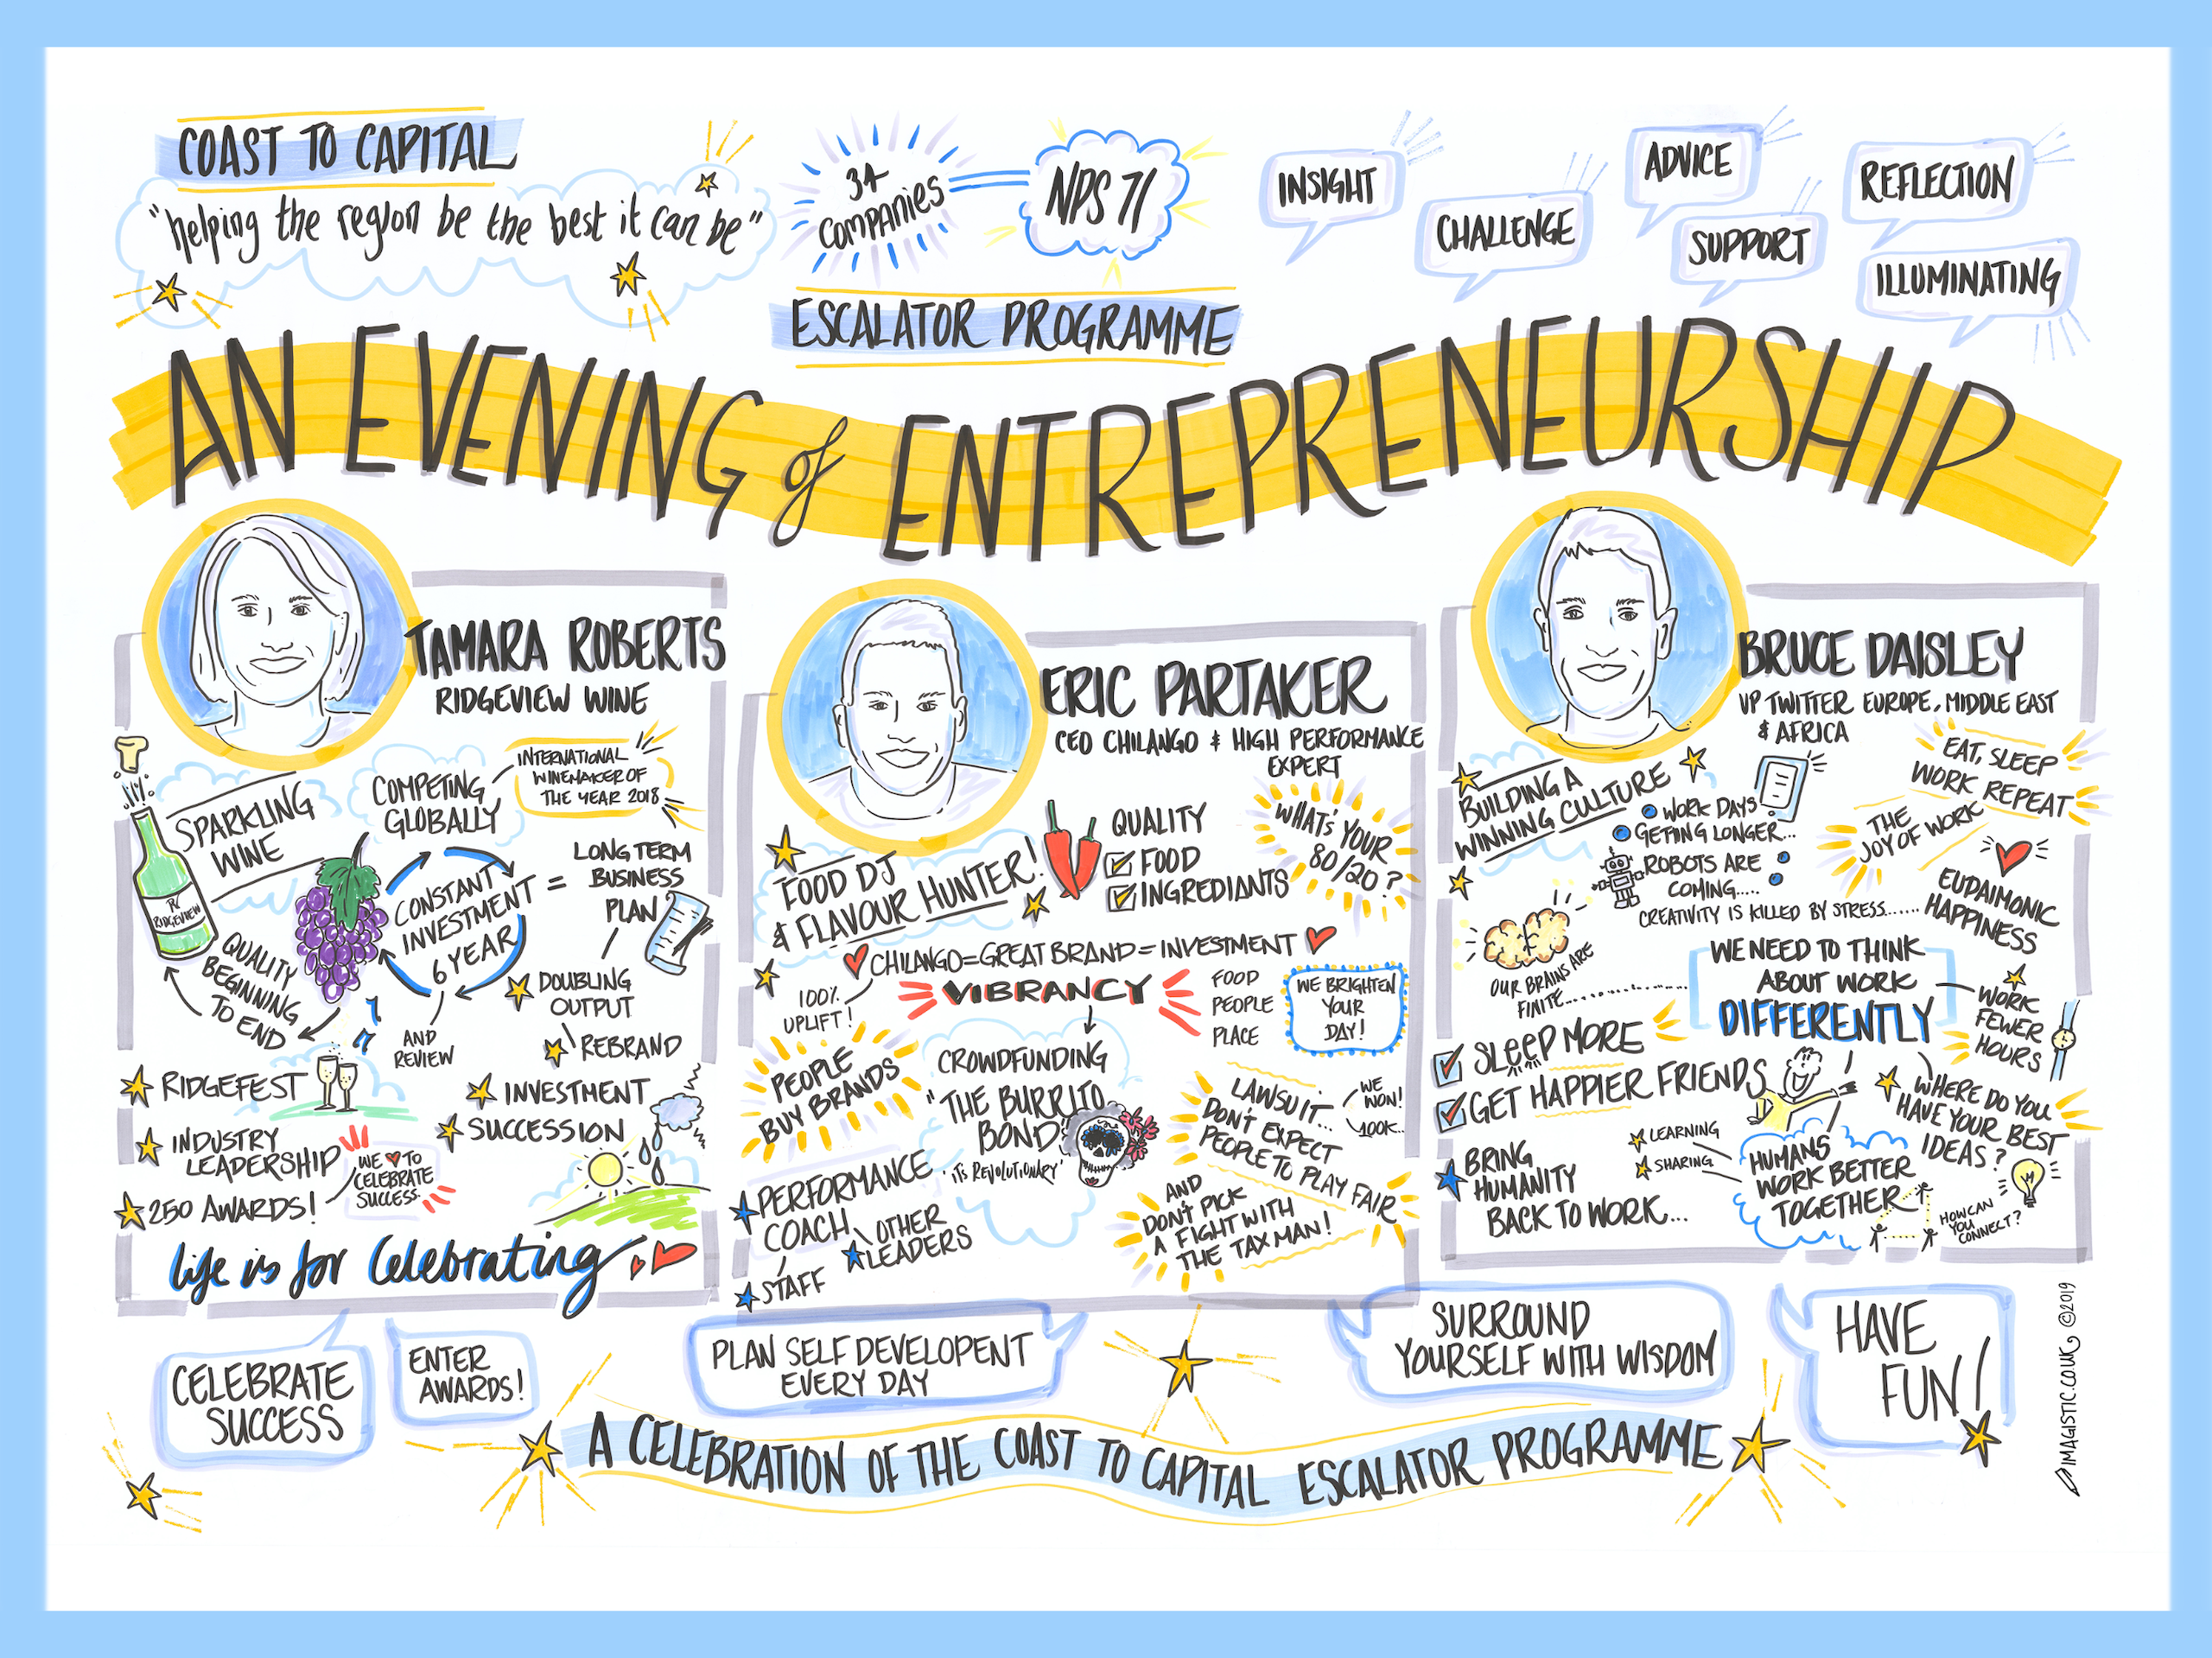 COAST TO CAPITAL
"helping the region be the best it can be"
34
COMPANIES
NPS 71
ESCALATOR PROGRAMME
INSIGHT
CHALLENGE
ADVICE
SUPPORT
REFLECTION
ILLUMINATING
AN EVENING of ENTREPRENEURSHIP
TAMARA ROBERTS
RIDGEVIEW WINE
SPARKLING
WINE
COMPETING
GLOBALLY
INTERNATIONAL
WINEMAKER OF
THE YEAR 2018
RIDGEVIEW
QUALITY
BEGINNING
TO END
CONSTANT
INVESTMENT
6 YEAR
=
LONG TERM
BUSINESS
PLAN
AND
REVIEW
DOUBLING
OUTPUT
REBRAND
INVESTMENT
SUCCESSION
RIDGEFEST
INDUSTRY
LEADERSHIP
250 AWARDS!
WE ♥ TO
CELEBRATE
SUCCESS
life is for celebrating
ERIC PARTAKER
CEO CHILANGO & HIGH PERFORMANCE
EXPERT
FOOD DJ
& FLAVOUR HUNTER!
QUALITY
FOOD
INGREDIANTS
WHAT'S YOUR
80/20?
CHILANGO = GREAT BRAND = INVESTMENT
100%
UPLIFT!
VIBRANCY
FOOD
PEOPLE
PLACE
WE BRIGHTEN
YOUR
DAY!
PEOPLE
BUY BRANDS
CROWDFUNDING
"THE BURRITO
BOND"
'ITS REVOLUTIONARY'
PERFORMANCE
COACH
OTHER
LEADERS
STAFF
LAWSUIT...
WE
WON!
100K..
DON'T EXPECT
PEOPLE TO PLAY FAIR
AND
DON'T PICK
A FIGHT WITH
THE TAX MAN!
BRUCE DAISLEY
VP TWITTER EUROPE, MIDDLE EAST
& AFRICA
BUILDING A
WINNING CULTURE
WORK DAYS
GETTING LONGER...
ROBOTS ARE
COMING.....
CREATIVITY IS KILLED BY STRESS......
EAT, SLEEP
WORK REPEAT
THE
JOY OF WORK
EUDAIMONIC
HAPPINESS
OUR BRAINS ARE
FINITE
WE NEED TO THINK
ABOUT WORK
DIFFERENTLY
WORK
FEWER
HOURS
SLEEP MORE
GET HAPPIER FRIENDS
BRING
HUMANITY
BACK TO WORK...
LEARNING
SHARING
HUMANS
WORK BETTER
TOGETHER
WHERE DO YOU
HAVE YOUR BEST
IDEAS?
HOW CAN
YOU
CONNECT?
CELEBRATE
SUCCESS
ENTER
AWARDS!
PLAN SELF DEVELOPENT
EVERY DAY
SURROUND
YOURSELF WITH WISDOM
HAVE
FUN!
A CELEBRATION OF THE COAST TO CAPITAL ESCALATOR PROGRAMME
IMAGISTIC.CO.UK ©2019